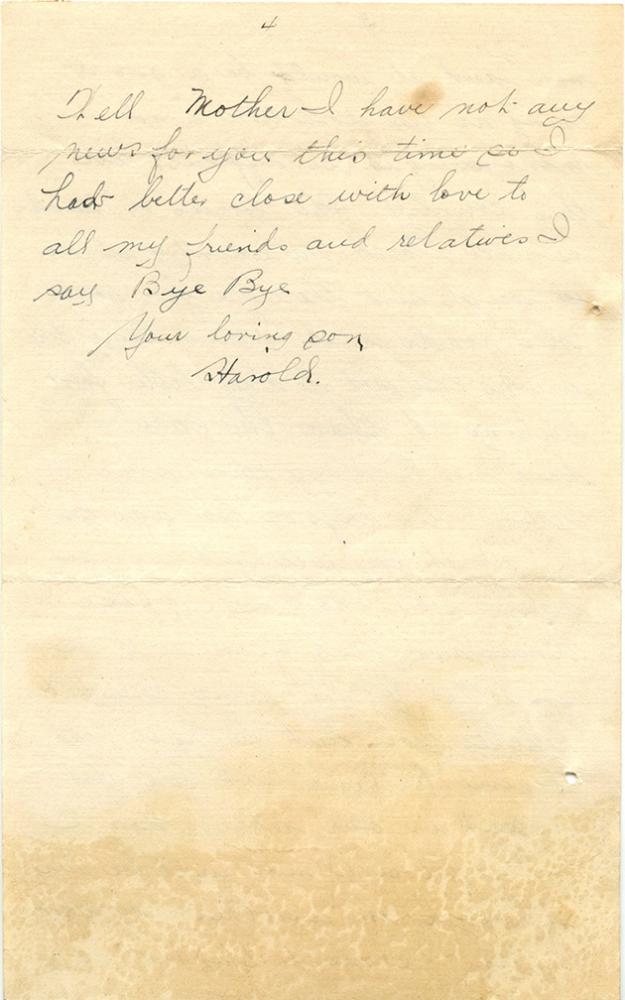 4
Well Mother I have not any
news for you this time so I
had better close with love to
all my friends and relatives I
say Bye Bye
Your loving son
Harold.